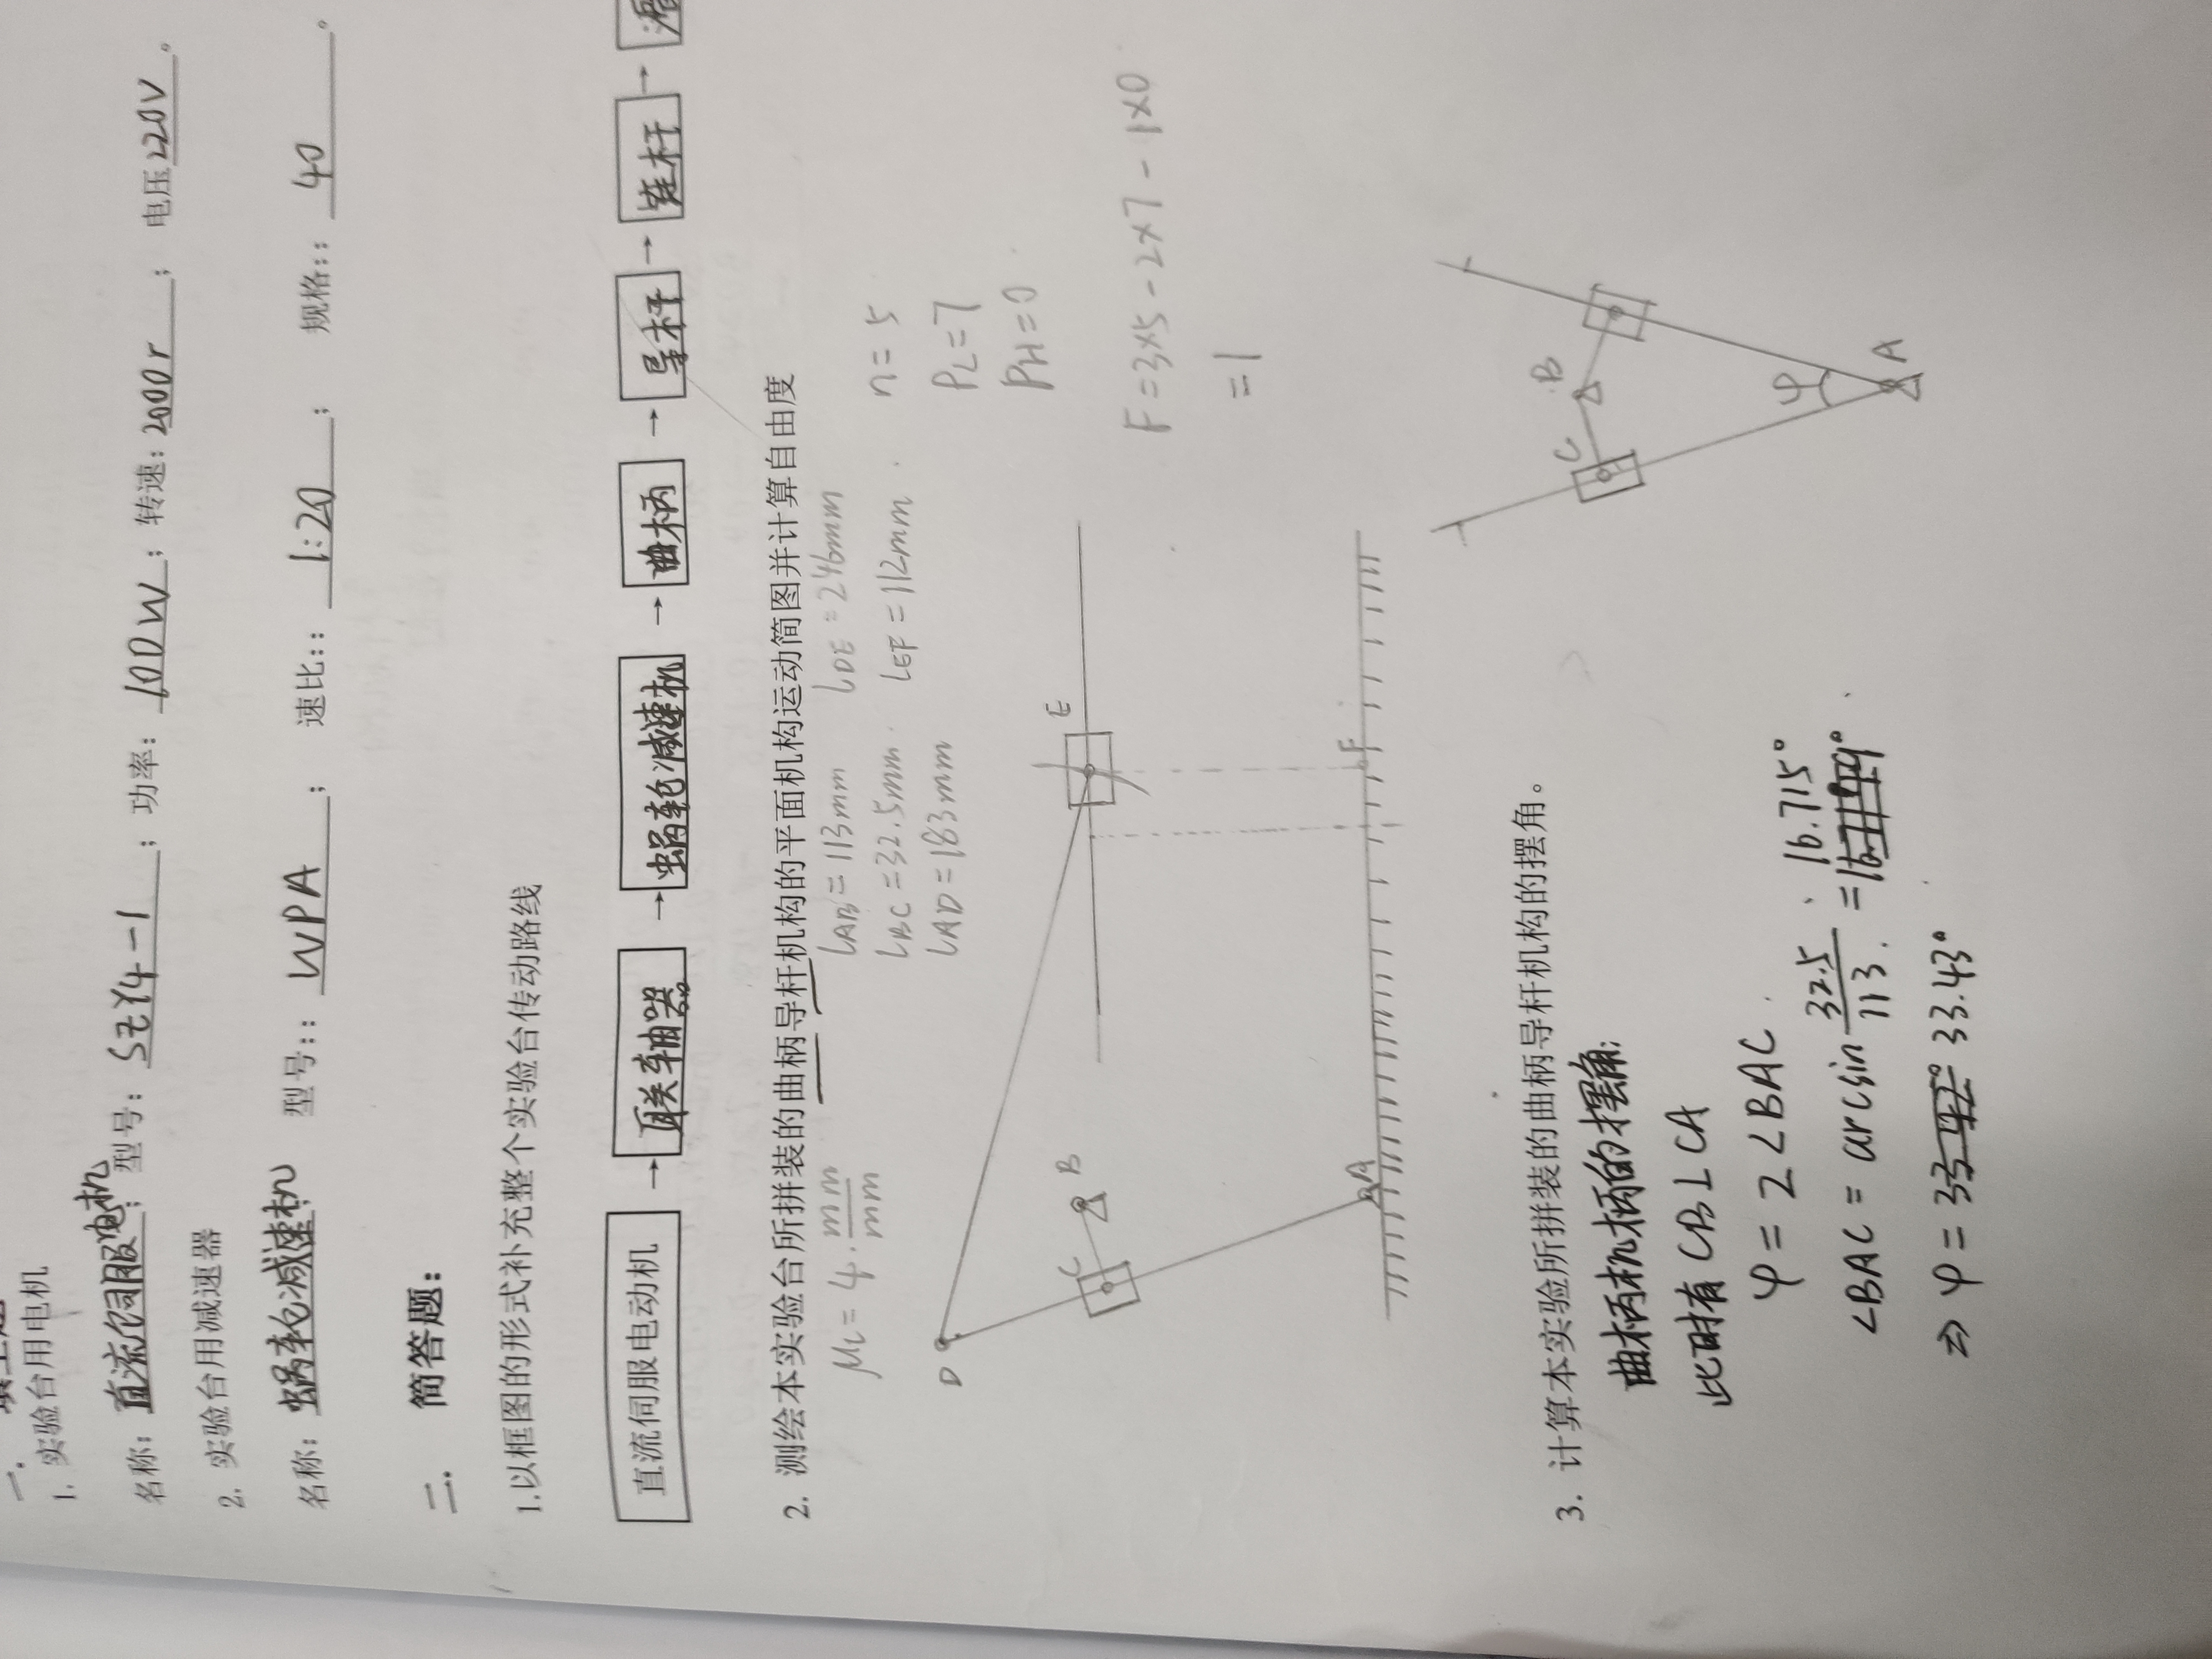 一. 填空题
1. 实验台用电机
名称: 直流伺服电机; 型号: SZY4-1; 功率: 100W; 转速: 2000r; 电压220V。
2. 实验台用减速器
名称: 蜗轮减速机; 型号:: WPA; 速比:: 1:20; 规格:: 40。
二. 简答题:
1.以框图的形式补充整个实验台传动路线
直流伺服电动机 → 联轴器 → 蜗轮减速机 → 曲柄 → 导杆 → 连杆 →
2. 测绘本实验台所拼装的曲柄导杆机构的平面机构运动简图并计算自由度
μL = 4 · mm/mm
LAB = 113mm LDE = 246mm
LBC = 32.5mm LEF = 112mm
LAD = 183mm
n = 5
PL = 7
PH = 0
F = 3×5 - 2×7 - 1×0
= 1
D
C B
E
A F
3. 计算本实验所拼装的曲柄导杆机构的摆角。
曲柄机柄的摆角:
此时有 CB⊥CA
φ = 2∠BAC
∠BAC = arcsin 32.5/113 = 16.715°
⇒ φ = 33.43°
C B
φ
A